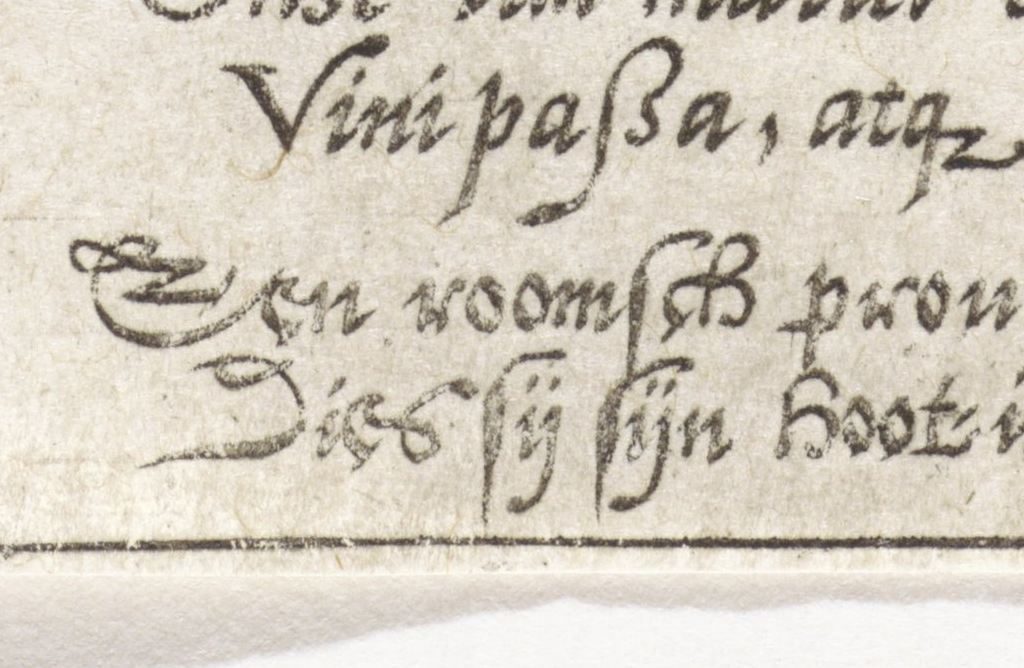 Vini paßa, atq
Een roomsch prou
Dies sij sijn hoot i